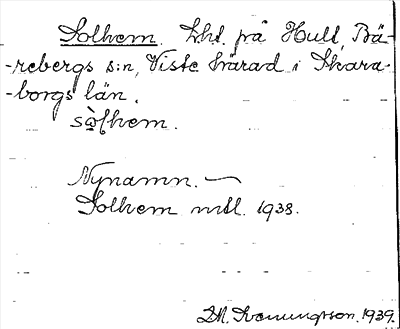 Solhem. Lht. på Hult, Bä-
-rebergs s:n, Viste härad i Skara-
-borgs län.
sòlhem.
Nynamn. —
Solhem mtl. 1938.
M. Svenungsson. 1939.